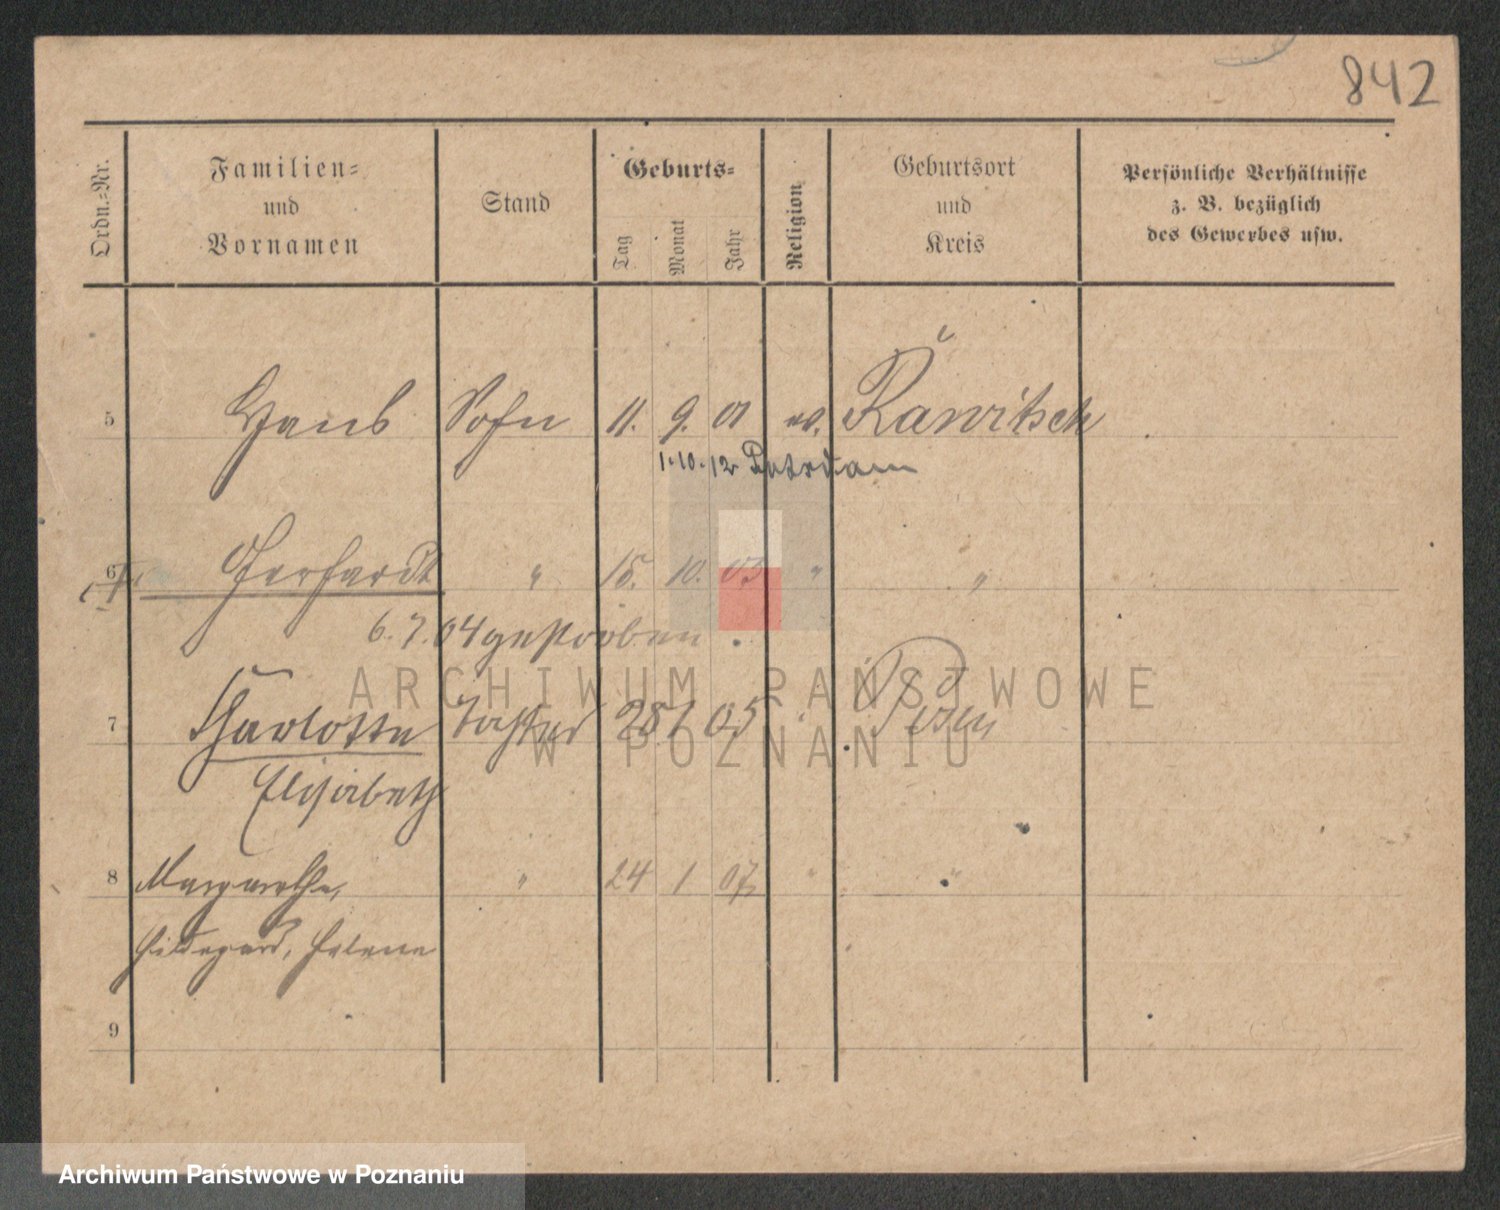 842
Ordn.-Nr.
Familien-
und
Vornamen
Stand
Geburts-
Tag
Monat
Jahr
Religion
Geburtsort
und
Kreis
Persönliche Verhältnisse
z. B. bezüglich
des Gewerbes usw.
5 Hans Sohn 11. 9. 01 ev. Rawitsch
1.10.12 Potsdam
6 Gerhardt " 15. 10. 03 " "
6.7.04 gestorben.
7 Charlotte Tochter 28 1 05 " Posen
Elisabeth
8 Margarethe, " 24 1 07 " "
Hildegard, Helene
9
ARCHIWUM PAŃSTWOWE
W POZNANIU
Archiwum Państwowe w Poznaniu